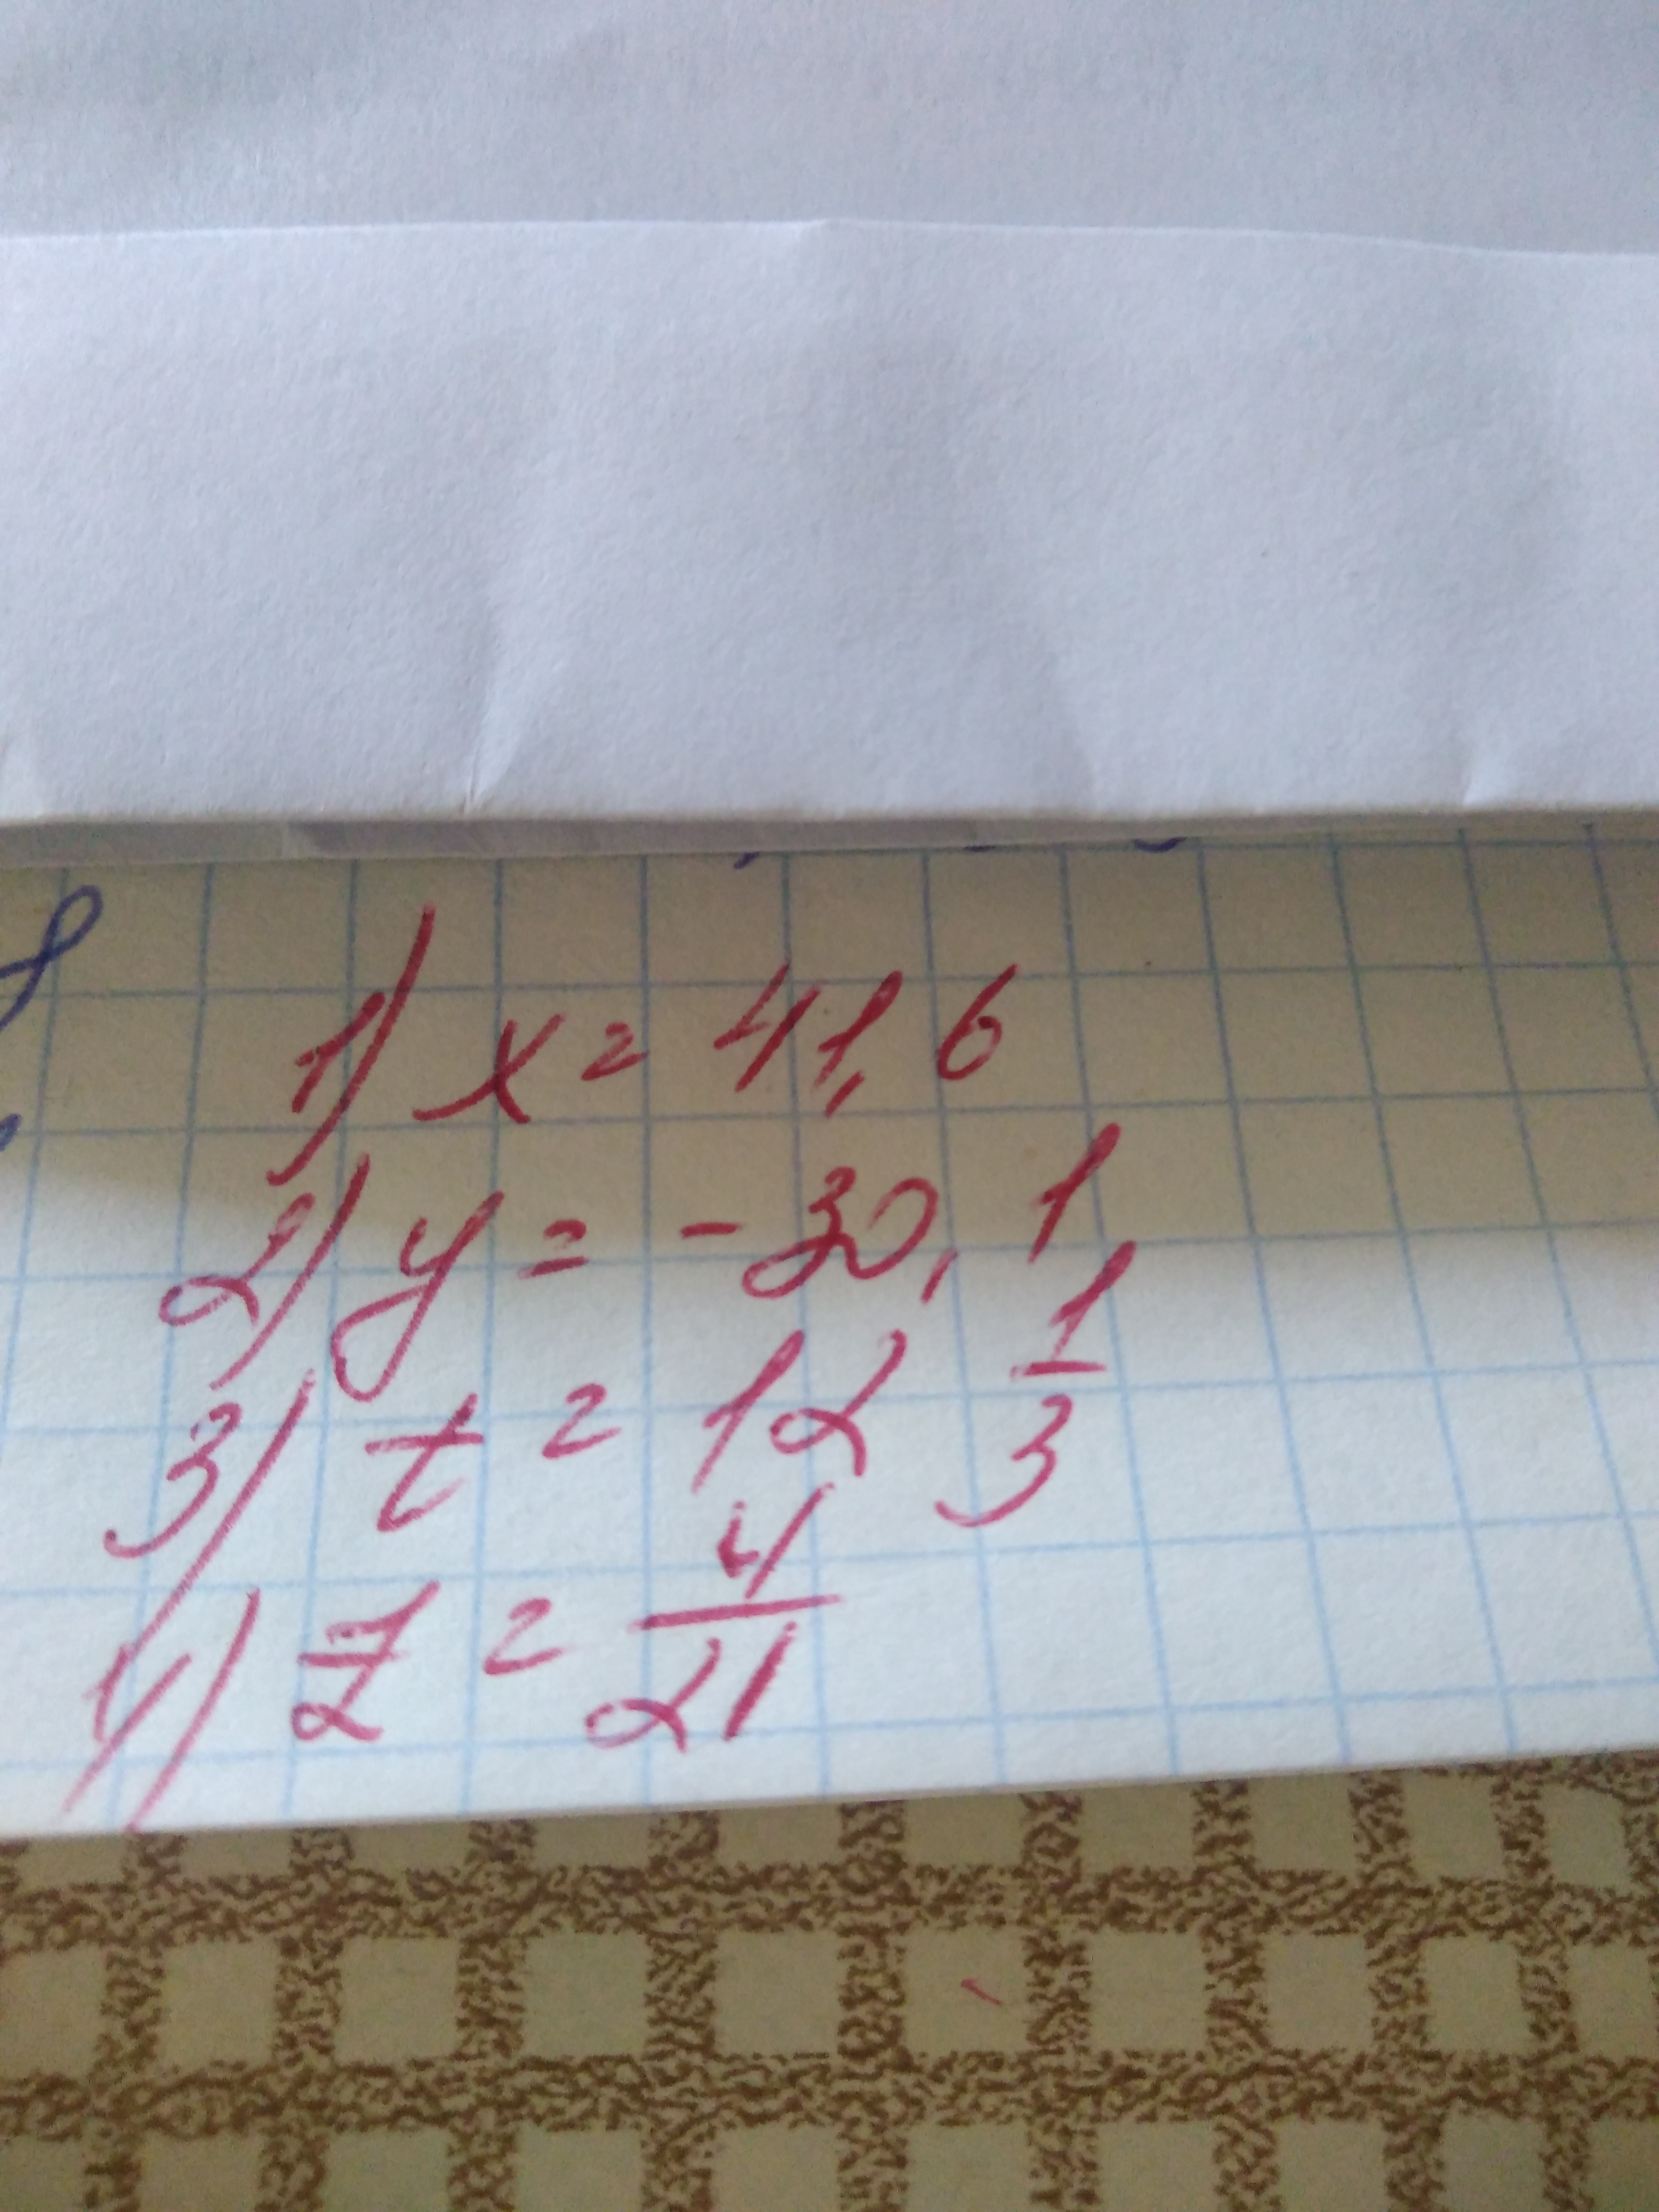 1) x = 41,6
2) y = -30,1
3) t = 12 1/3
4) z = 4/21